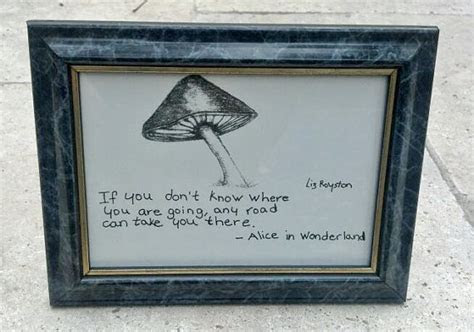 Liz Royston
If you don't know where
you are going, any road
can take you there.
– Alice in Wonderland